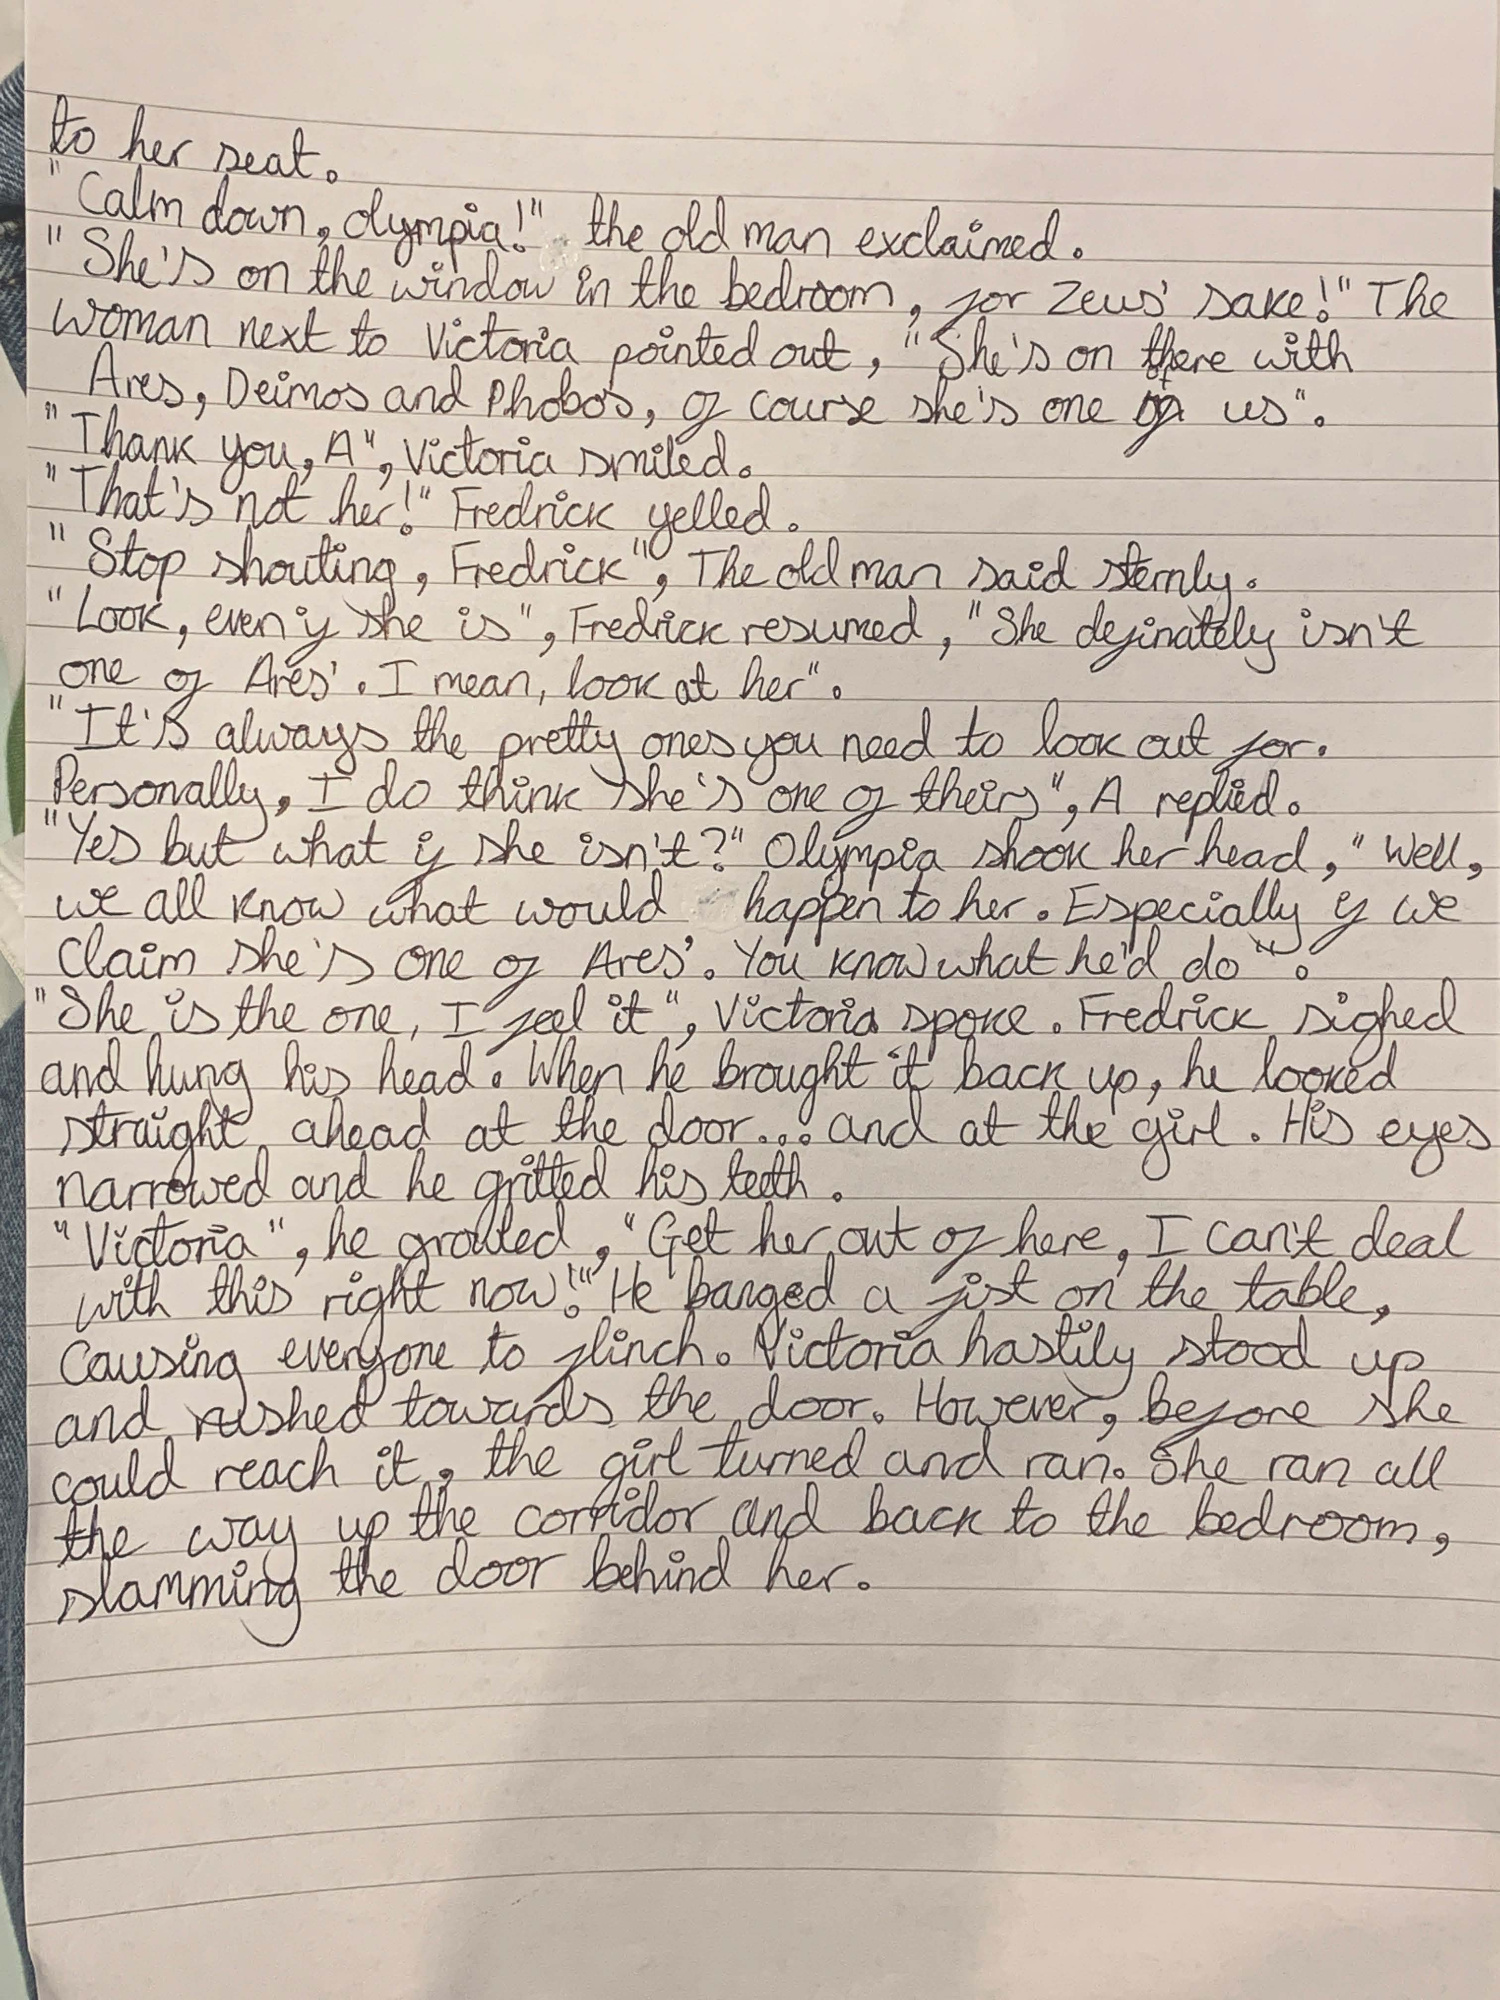 to her seat.
"Calm down, Olympia!" the old man exclaimed.
"She's on the window in the bedroom, for Zeus' sake!" The
woman next to Victoria pointed out, "She's on there with
Ares, Deimos and Phobos, of course she's one of us".
"Thank you, A", Victoria smiled.
"That's not her!" Fredrick yelled.
"Stop shouting, Fredrick", The old man said sternly.
"Look, even if she is", Fredrick resumed, "She definately isn't
one of Ares'. I mean, look at her".
"It's always the pretty ones you need to look out for.
Personally, I do think she's one of theirs", A replied.
"Yes but what if she isn't?" Olympia shook her head, "Well,
we all know what would happen to her. Especially if we
claim she's one of Ares'. You know what he'd do".
"She is the one, I feel it", Victoria spoke. Fredrick sighed
and hung his head. When he brought it back up, he looked
straight ahead at the door... and at the girl. His eyes
narrowed and he gritted his teeth.
"Victoria", he growled, "Get her out of here, I can't deal
with this right now!" He banged a fist on the table,
causing everyone to flinch. Victoria hastily stood up
and rushed towards the door. However, before she
could reach it, the girl turned and ran. She ran all
the way up the corridor and back to the bedroom,
slamming the door behind her.